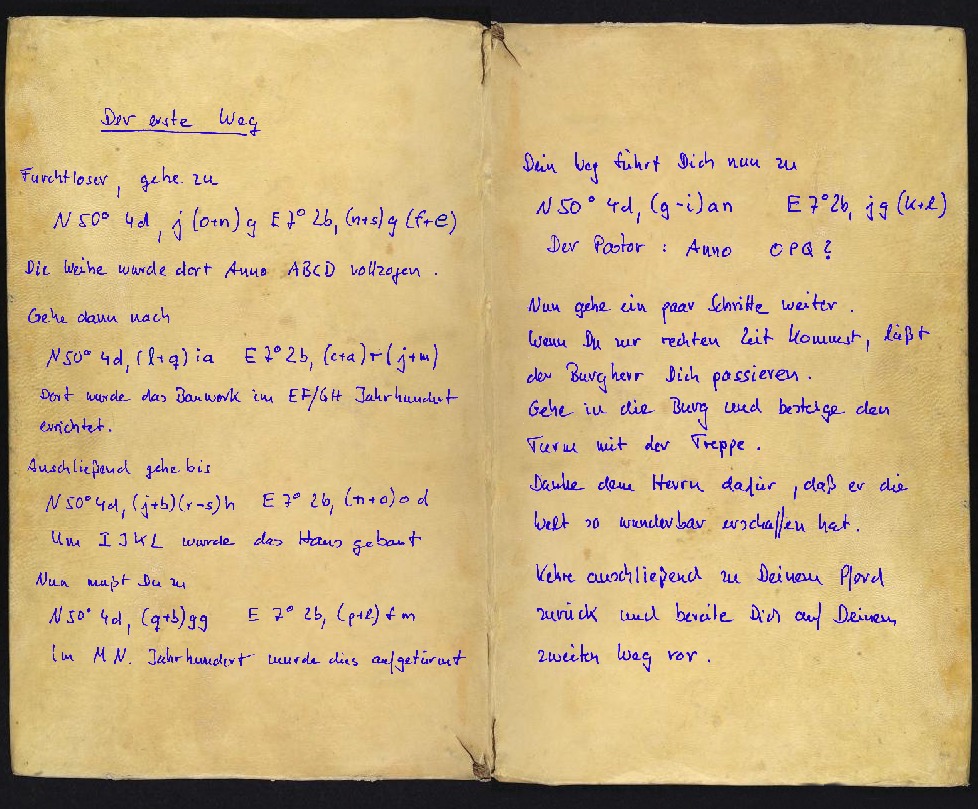 Der erste Weg
Furchtloser, gehe zu
N 50° 4d, j (o+n) g E 7° 2b, (n+s) g (f+e)
Die Weihe wurde dort Anno ABCD vollzogen.
Gehe dann nach
N 50° 4d, (l+q) i a E 7° 2b, (c+a) r (j+m)
Dort wurde das Bauwerk im EF/GH Jahrhundert
errichtet.
Anschließend gehe bis
N 50° 4d, (j+b)(r-s)h E 7° 2b, (n+o) o d
Um IJKL wurde das Haus gebaut
Nun mußt Du zu
N 50° 4d, (q+b) g g E 7° 2b, (p+l) f m
Im MN. Jahrhundert wurde dies aufgetürmt
Dein Weg führt Dich nun zu
N 50° 4d, (g-i) a n E 7° 2b, j g (k+l)
Der Pastor : Anno OPQ?
Nun gehe ein paar Schritte weiter.
Wenn Du zur rechten Zeit kommst, läßt
der Burgherr Dich passieren.
Gehe in die Burg und besteige den
Turm mit der Treppe.
Danke dem Herrn dafür, daß er die
Welt so wunderbar erschaffen hat.
Kehre anschließend zu Deinem Pferd
zurück und bereite Dich auf Deinen
zweiten Weg vor.